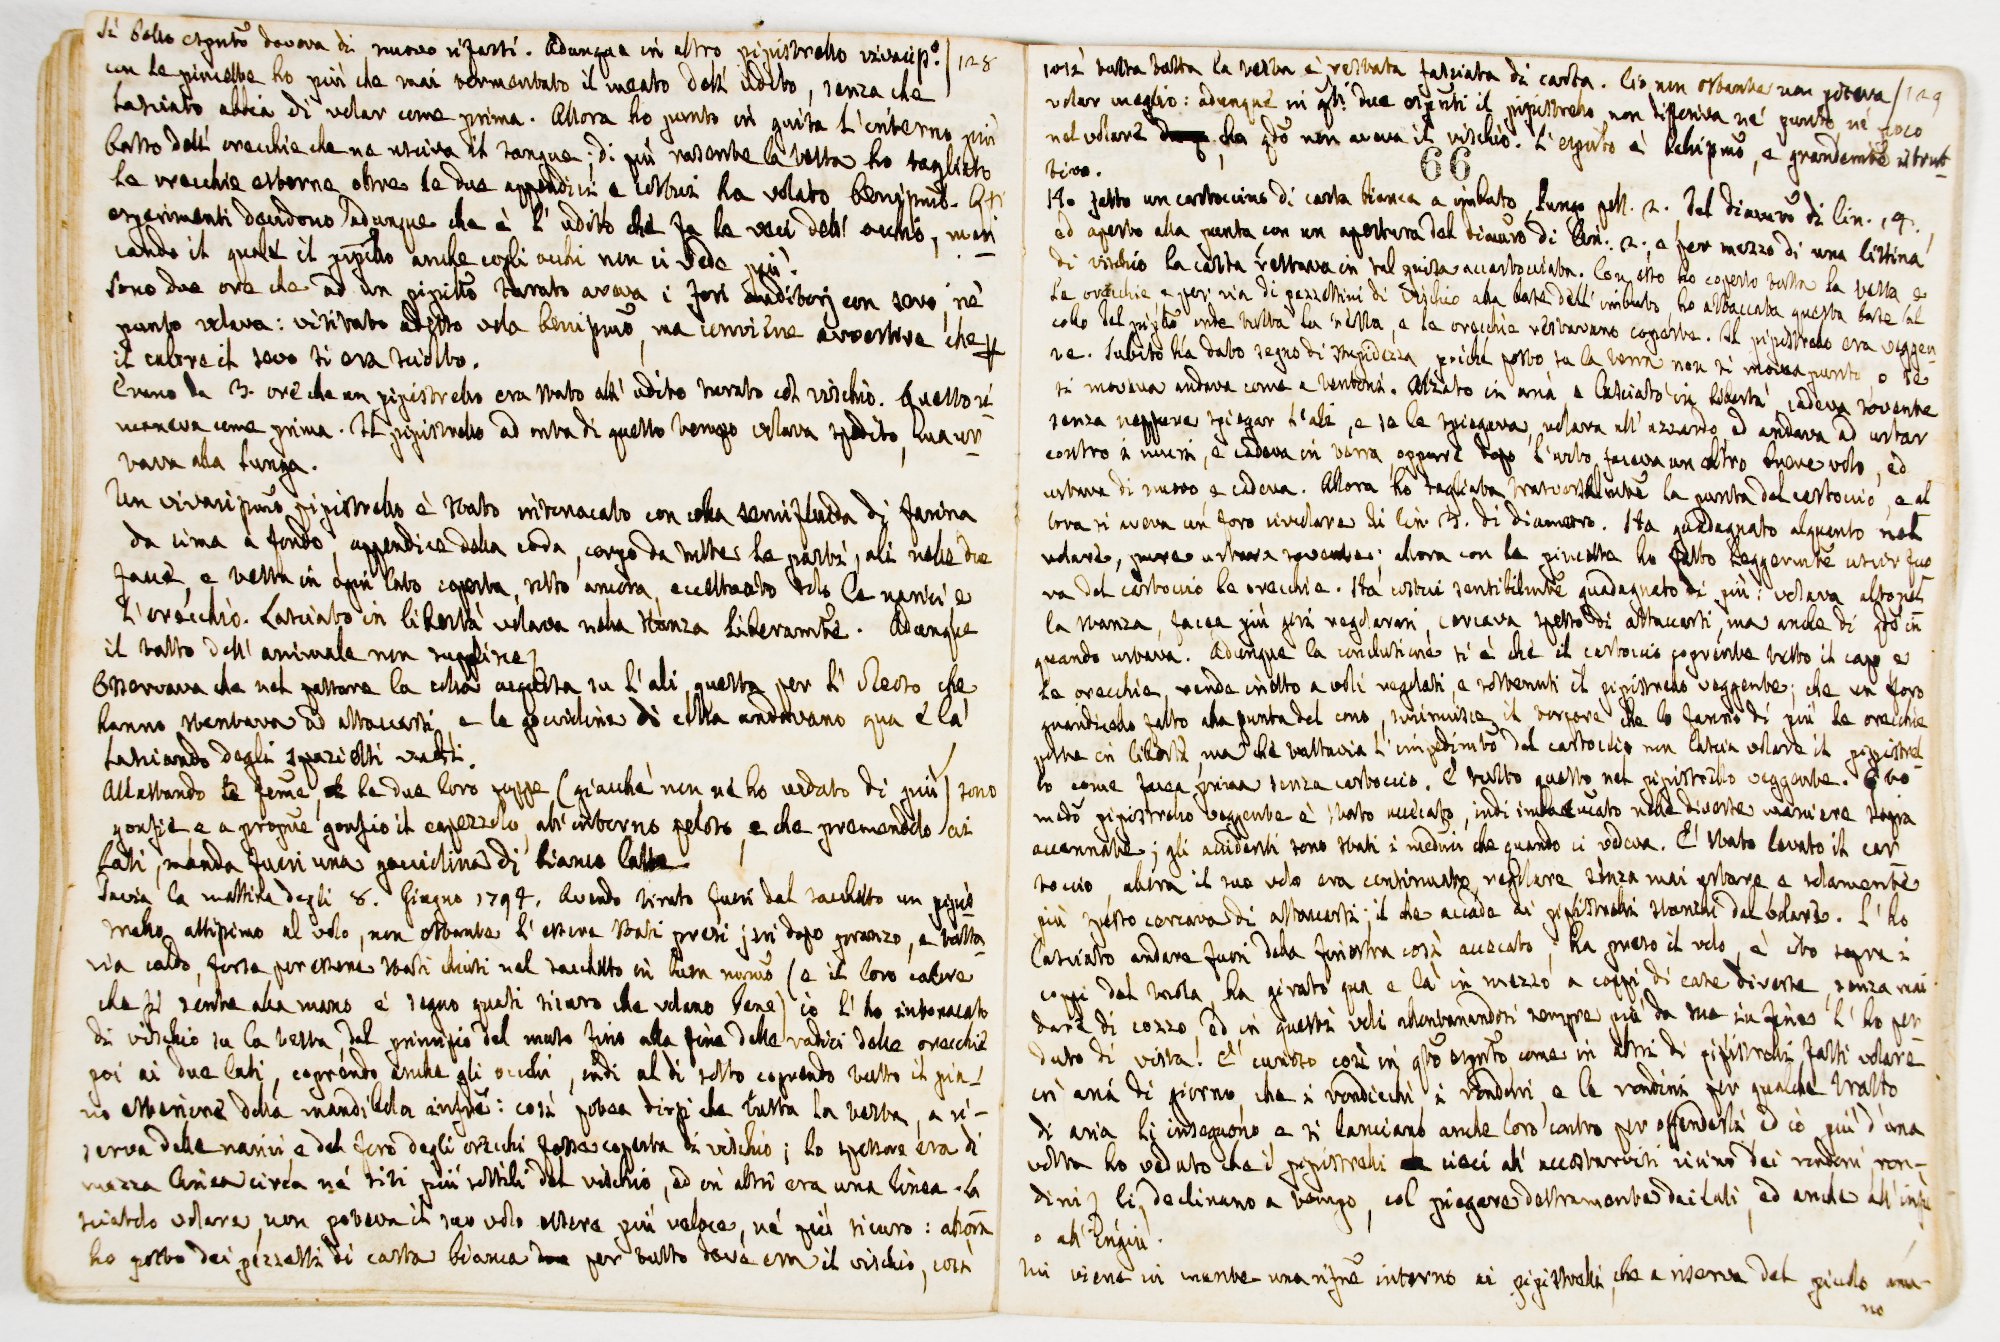 Si bello esperto doveva di nuovo rifarsi. Adunque in altro pipistrello vivacissº. /128
con le pincette ho più che mai tormentato il meato dell' udito, senza che
lasciato abbia di volar come prima. Allora ho punto in guisa l'interno più
basso dell' orecchie che ne usciva il sangue; di più rasente la testa ho tagliato
le orecchie esterne oltre le due appendici e costui ha volato benissimo. Qti
esperimenti decidono adunque che è l' udito che fa le veci dell' occhio, man
cando il quale il pipillo anche cogli occhi non ci vede più.
Sono due ore che ad un pipillo turato aveva i fori auditorj con sevo, nè
punto volava: visitato adesso vola benissimo, ma conviene avvertire che
il calore il sevo si era sciolto.
Erano da 3. ore che un pipistrello era stato all' udito turato col vischio. Questo ri
maneva come prima. Il pipistrello ad onta di questo tempo volava spedito, ma ur-
tava alla lunga.
Un vivacissimo pipistrello è stato intonacato con colla semifluida di farina
da cima a fondo, appendice della coda, corpo da tutte le parti, ali nelle due
facce, e testa in ogni lato coperta, sotto ancora, eccettuato solo le narici e
l'orecchio. Lasciato in libertà volava nella stanza liberamte. Adunque
il tatto dell' animale non supplisce.
Osservava che nel gettare la colla acquosa su l' ali, questa per l' oleoso che
hanno stentava ad attaccarsi, e le goccioline di colla andavano qua e là
lasciando degli spazietti vuoti.
Allattando le feme, le due loro poppe (giacchè non ne ho vedato di più) sono
gonfie, e a propne gonfio il capezzolo, all' intorno peloso, e che premendolo ai
lati, manda fuori una gocciolina di bianco latte
Pavia la mattina degli 8. Giugno 1794. Avendo tirato fuori dal sacchetto un pipis
trello attissimo al volo, non ostante l' essere stati presi jeri dopo pranzo, e tutta
via caldo, forse per essere stati chiusi nel sacchetto in buon numo (e il loro calore
che si sente alla mano è segno quasi sicuro che volano bene) io l' ho intonacato
di vischio su la testa, dal principio del muso fino alla fine delle radici delle orecchie
poi ai due lati, coprendo anche gli occhi, indi al di sotto coprendo tutto il pia-
no esteriore della mandibola infre: così potea dirsi che tutta la testa, a ri-
serva delle narici, e del foro degli orecchi fosse coperta di vischio; lo spessore era di
mezza linea circa ne' siti più sottili del vischio, ed in altri era una linea. La
sciatolo volare, non poteva il suo volo essere più veloce, nè più sicuro: allora
ho posto dei pezzetti di carta bianca per tutto dove era il vischio, così
così tutta tutta la testa è restata fasciata di carta. Ciò non ostante non poteva /129
volar meglio: adunque in qti due esperti il pipistrello non differiva nè punto, nè poco
nel volare da qdo non aveva il vischio. L' esperto è bellissimo, e grandemte istrut-
tivo.
66
Ho fatto un cartoccino di carta bianca a imbuto, lungo poll. 2. del diametro di lin. 9.
ed aperto alla punta con un apertura del diamtro di lin. 2; e per mezzo di una listina
di vischio la carta restava in tal guisa accartocciata. Con esso ho coperto tutta la testa e
le orecchie, e per via di pezzettini di vischio alla base dell' imbuto, ho attaccata questa base al
collo del pipllo onde tutta la testa, e le orecchie restavano coperte. Il pipistrello era veggen-
te. Subito ha dato segno di stupidezza poichè posto su la terra non si movea punto, o se
si moveva andava come a tentoni. Alzato in aria e lasciato in libertà cadeva sovente
senza neppure spiegar l' ali, e se le spiegava, volava all' azzardo ed andava ad urtar
contro i muri, e cadeva in terra, oppure dopo l' urto faceva un altro breve volo, ed
urtava di nuovo e cadeva. Allora ho tagliata trasversalmte la punta del cartoccio, e al
lora si aveva un foro circolare di lin. 3. di diametro. Ha guadagnato alquanto nel
volare, pure urtava sovente; allora con le pincette ho fatto leggermte uscir fuo
ra dal cartoccio le orecchie. Ha costui sensibilmte guadagnato di più: volava alto nel
la stanza, facea più giri regolari, cercava spesso di attaccarsi, ma anche di qdo in
quando urtava. Adunque la conclusione si è che il cartoccio coprente tutto il capo e
le orecchie, rende inetto a voli regolati, e sostenuti il pipistrello veggente; che un foro
grandicello fatto alla punta del cono, sminuisce il torpore che lo fanno di più le orecchie
poste in libertà, ma che tuttavia l' impedimto del cartoccio non lascia volare il pipistrel-
lo come facea prima senza cartoccio. È tutto questo nel pipistrello veggente. Esso
medmo pipistrello veggente è stato accecato, indi imbavucato nelle diverse maniere sopra
accennate; gli accidenti sono stati i medmi che quando ci vedeva. È stato levato il car
toccio, allora il suo volo era continuato, regolare, senza mai urtare e solamente
più spesso cercava di attaccarsi; il che accade ai pipistrelli stanchi dal volare. L' ho
lasciato andare fuori della finestra così accecato; ha preso il volo, è ito sopra i
coppi del tetto, ha girato qua e là in mezzo a coppi di case diverse, senza mai
dare di cozzo ed in questi voli allontanandosi sempre più da me in fine l' ho per
duto di vista. È curioso così in qto esperto come in altri di pipistrelli fatti volare
in aria di giorno, che i rondicchi i rondoni, e le rondini per qualche tratto
di aria li inseguono, e si lanciano anche loro contro per offenderli, ed io più d' una
volta ho veduto che i pipistrelli ciechi all' accostarvisi vicino dei rondoni, ron-
dini, li declinano a tempo, col piegare destramente dai lati, ed anche all' ingiù
o all' insù.
Mi viene in mente una rifne intorno ai pipistrelli, che a riserva del piccolo nu-
no